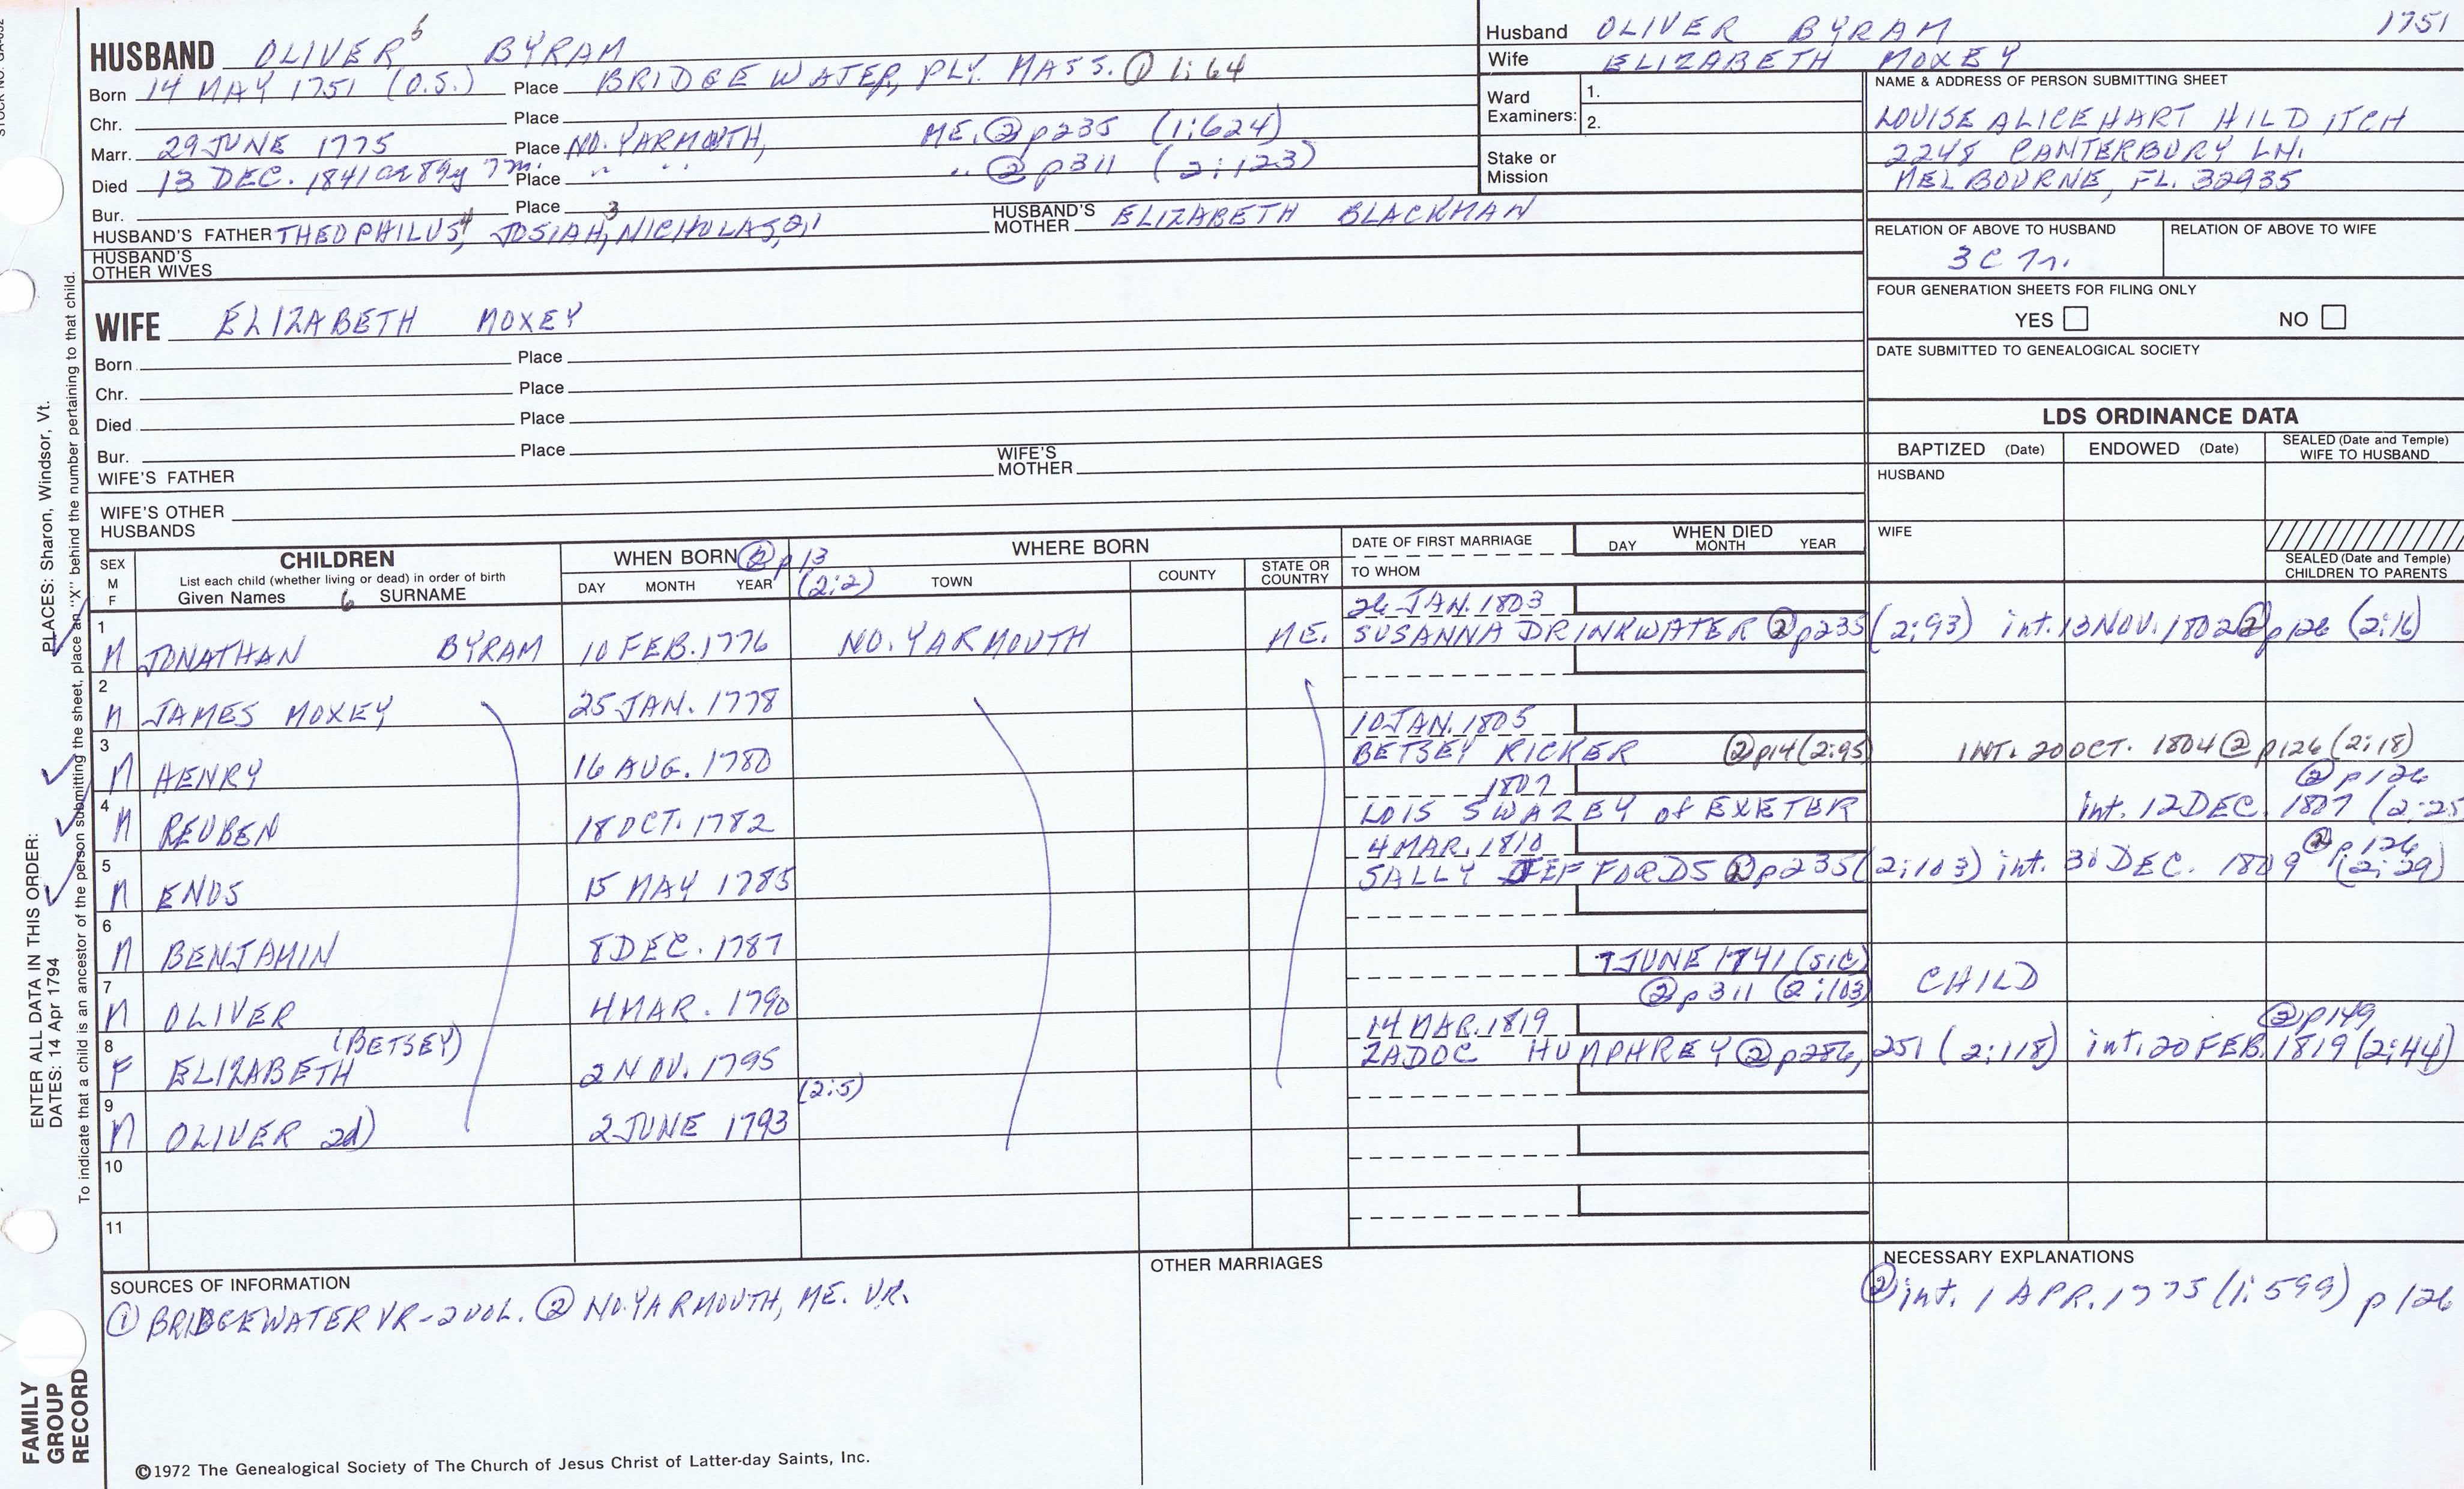 STOCK NO. GA-032
HUSBAND OLIVER 5 BYRAM
Born 14 MAY 1751 (O.S.) Place BRIDGEWATER, PLY. MASS. ① 1:64
Chr. Place
Marr. 29 JUNE 1775 Place NO. YARMOUTH, ME. ② p235 (1:624)
Died 13 DEC. 1841 ae 89y 7m. Place " " " ② p311 (2:123)
Bur. Place
HUSBAND'S FATHER THEOPHILUS, 4 JOSIAH, 3 NICHOLAS, 2, 1 HUSBAND'S MOTHER ELIZABETH BLACKMAN
HUSBAND'S OTHER WIVES
WIFE ELIZABETH MOXEY
Born Place
Chr. Place
Died Place
Bur. Place
WIFE'S FATHER WIFE'S MOTHER
WIFE'S OTHER HUSBANDS
Husband OLIVER BYRAM 1751
Wife ELIZABETH MOXEY
Ward Examiners: 1.
2.
Stake or Mission
NAME & ADDRESS OF PERSON SUBMITTING SHEET
LOUISE ALICE HART HILDITCH
2248 CANTERBURY LN.
MELBOURNE, FL. 32935
RELATION OF ABOVE TO HUSBAND RELATION OF ABOVE TO WIFE
3C 7r.
FOUR GENERATION SHEETS FOR FILING ONLY
YES NO
DATE SUBMITTED TO GENEALOGICAL SOCIETY
LDS ORDINANCE DATA
BAPTIZED (Date) ENDOWED (Date) SEALED (Date and Temple) WIFE TO HUSBAND
HUSBAND
WIFE
SEALED (Date and Temple) CHILDREN TO PARENTS
SEX M F
CHILDREN
List each child (whether living or dead) in order of birth
Given Names 6 SURNAME
WHEN BORN ② p13
DAY MONTH YEAR (2:2)
WHERE BORN
TOWN COUNTY STATE OR COUNTRY
DATE OF FIRST MARRIAGE
TO WHOM
WHEN DIED
DAY MONTH YEAR
26 JAN. 1803
1 M JONATHAN BYRAM 10 FEB. 1776 NO. YARMOUTH ME. SUSANNA DRINKWATER ② p235 (2:93) int. 13 NOV. 1802 ② p126 (2:16)
2 M JAMES MOXEY 25 JAN. 1778
10 JAN. 1805
3 M HENRY 16 AUG. 1780 BETSEY RICKER ② p14 (2:95) INT. 20 OCT. 1804 ② p126 (2:18)
1807 ② p126
4 M REUBEN 18 OCT. 1782 LOIS SWAZEY of EXETER int. 12 DEC. 1807 (2:25
4 MAR. 1810 ② p126
5 M ENOS 15 MAY 1785 SALLY JEFFORDS ② p235 (2:103) int. 30 DEC. 1809 (2:29)
6 M BENJAMIN 8 DEC. 1787
7 JUNE 1741 (SIC)
7 M OLIVER 4 MAR. 1790 ② p311 (2:103) CHILD
(BETSEY) 14 MAR. 1819 ② p149
8 F ELIZABETH 2 NOV. 1795 ZADOC HUMPHREY ② p286, 251 (2:118) int. 20 FEB. 1819 (2:44)
(2:5)
9 M OLIVER 2d) 2 JUNE 1793
10
11
SOURCES OF INFORMATION
① BRIDGEWATER VR - 2 VOL. ② NO. YARMOUTH, ME. VR.
OTHER MARRIAGES
NECESSARY EXPLANATIONS
② int. 1 APR. 1775 (1:599) p 126
©1972 The Genealogical Society of The Church of Jesus Christ of Latter-day Saints, Inc.
ENTER ALL DATA IN THIS ORDER:
DATES: 14 Apr 1794 PLACES: Sharon, Windsor, Vt.
To indicate that a child is an ancestor of the person submitting the sheet, place an "X" behind the number pertaining to that child.
FAMILY
GROUP
RECORD